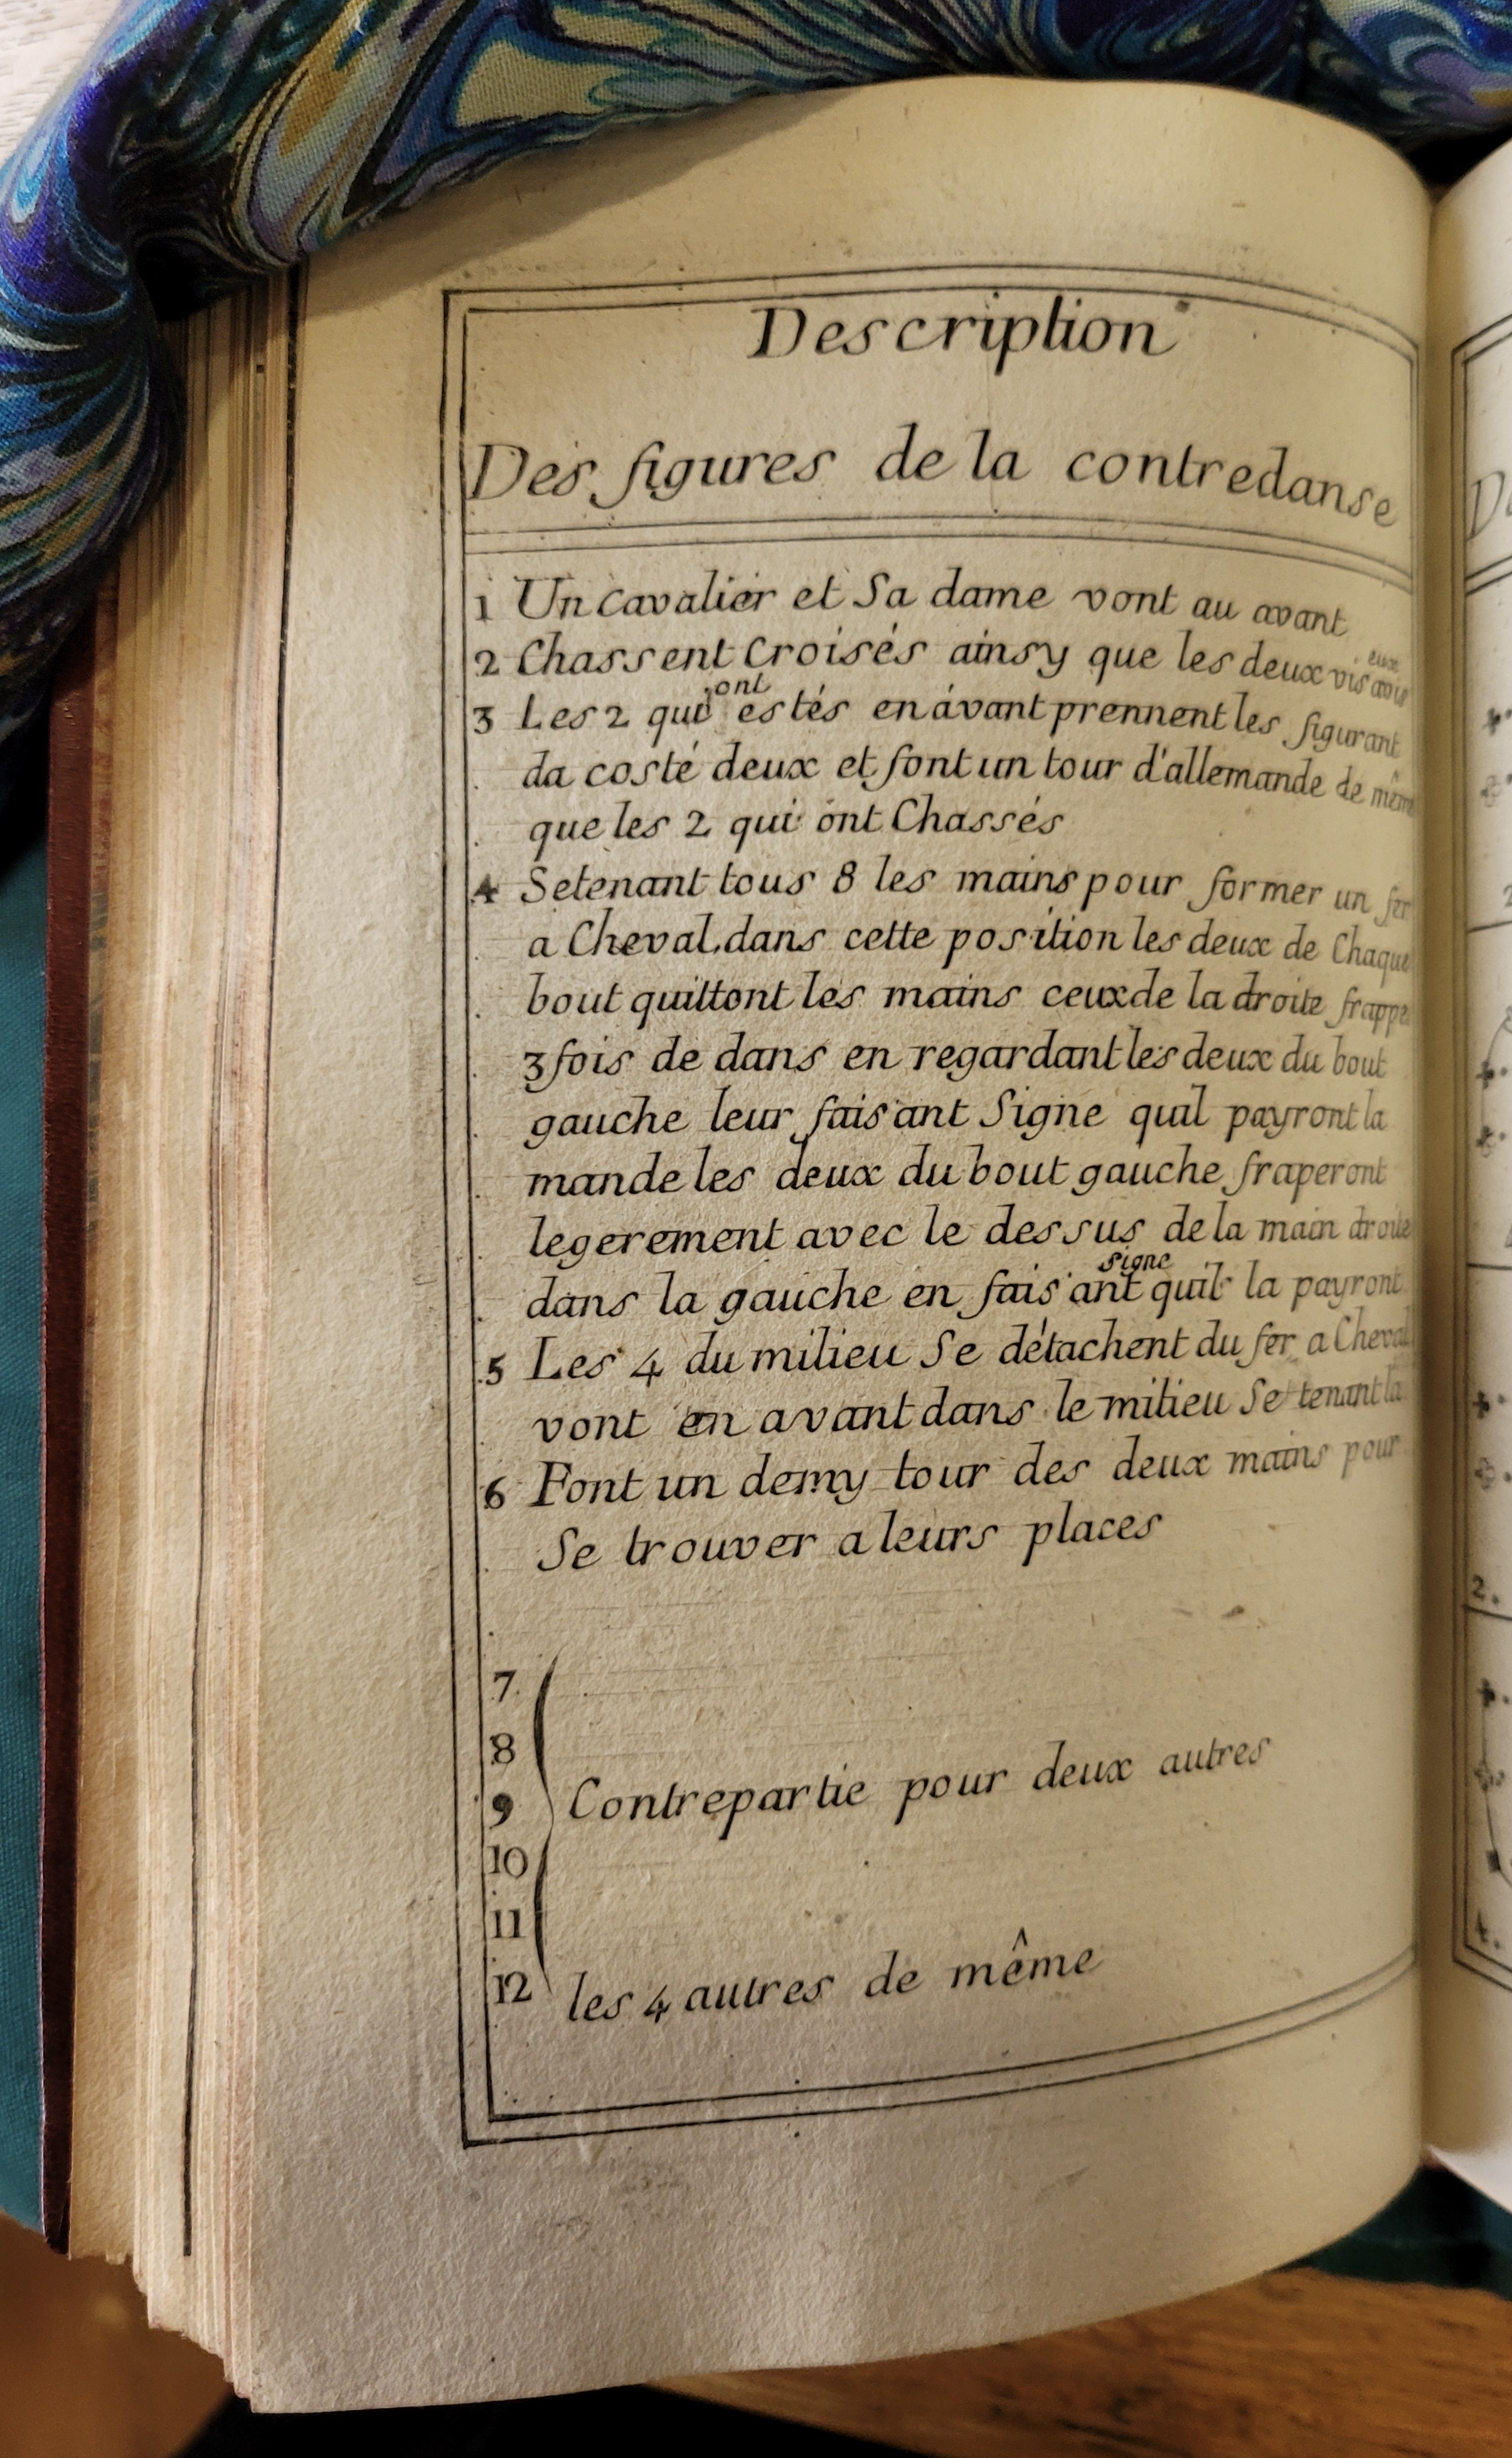 Description
Des figures de la contredanse
1 Un cavalier et Sa dame vont au avant
2 Chassent Croisés ainsy que les deux vis avis eux
3 Les 2 qui ont estés en avant prennent les figurant
da costé deux et font un tour d'allemande de même
que les 2 qui ont Chassés
4 Setenant tous 8 les mains pour former un fer
a Cheval, dans cette position les deux de Chaque
bout quittont les mains ceux de la droite frappe
3 fois de dans en regardant les deux du bout
gauche leur faisant Signe quil payront la
mande les deux du bout gauche fraperont
legerement avec le dessus de la main droite
dans la gauche en faisant signe quil la payront
5 Les 4 du milieu Se détachent du fer a Cheval
vont en avant dans le milieu Se tenant la
6 Font un demy tour des deux mains pour
Se trouver a leurs places
7
8
9 Contrepartie pour deux autres
10
11
12 les 4 autres de même
2.